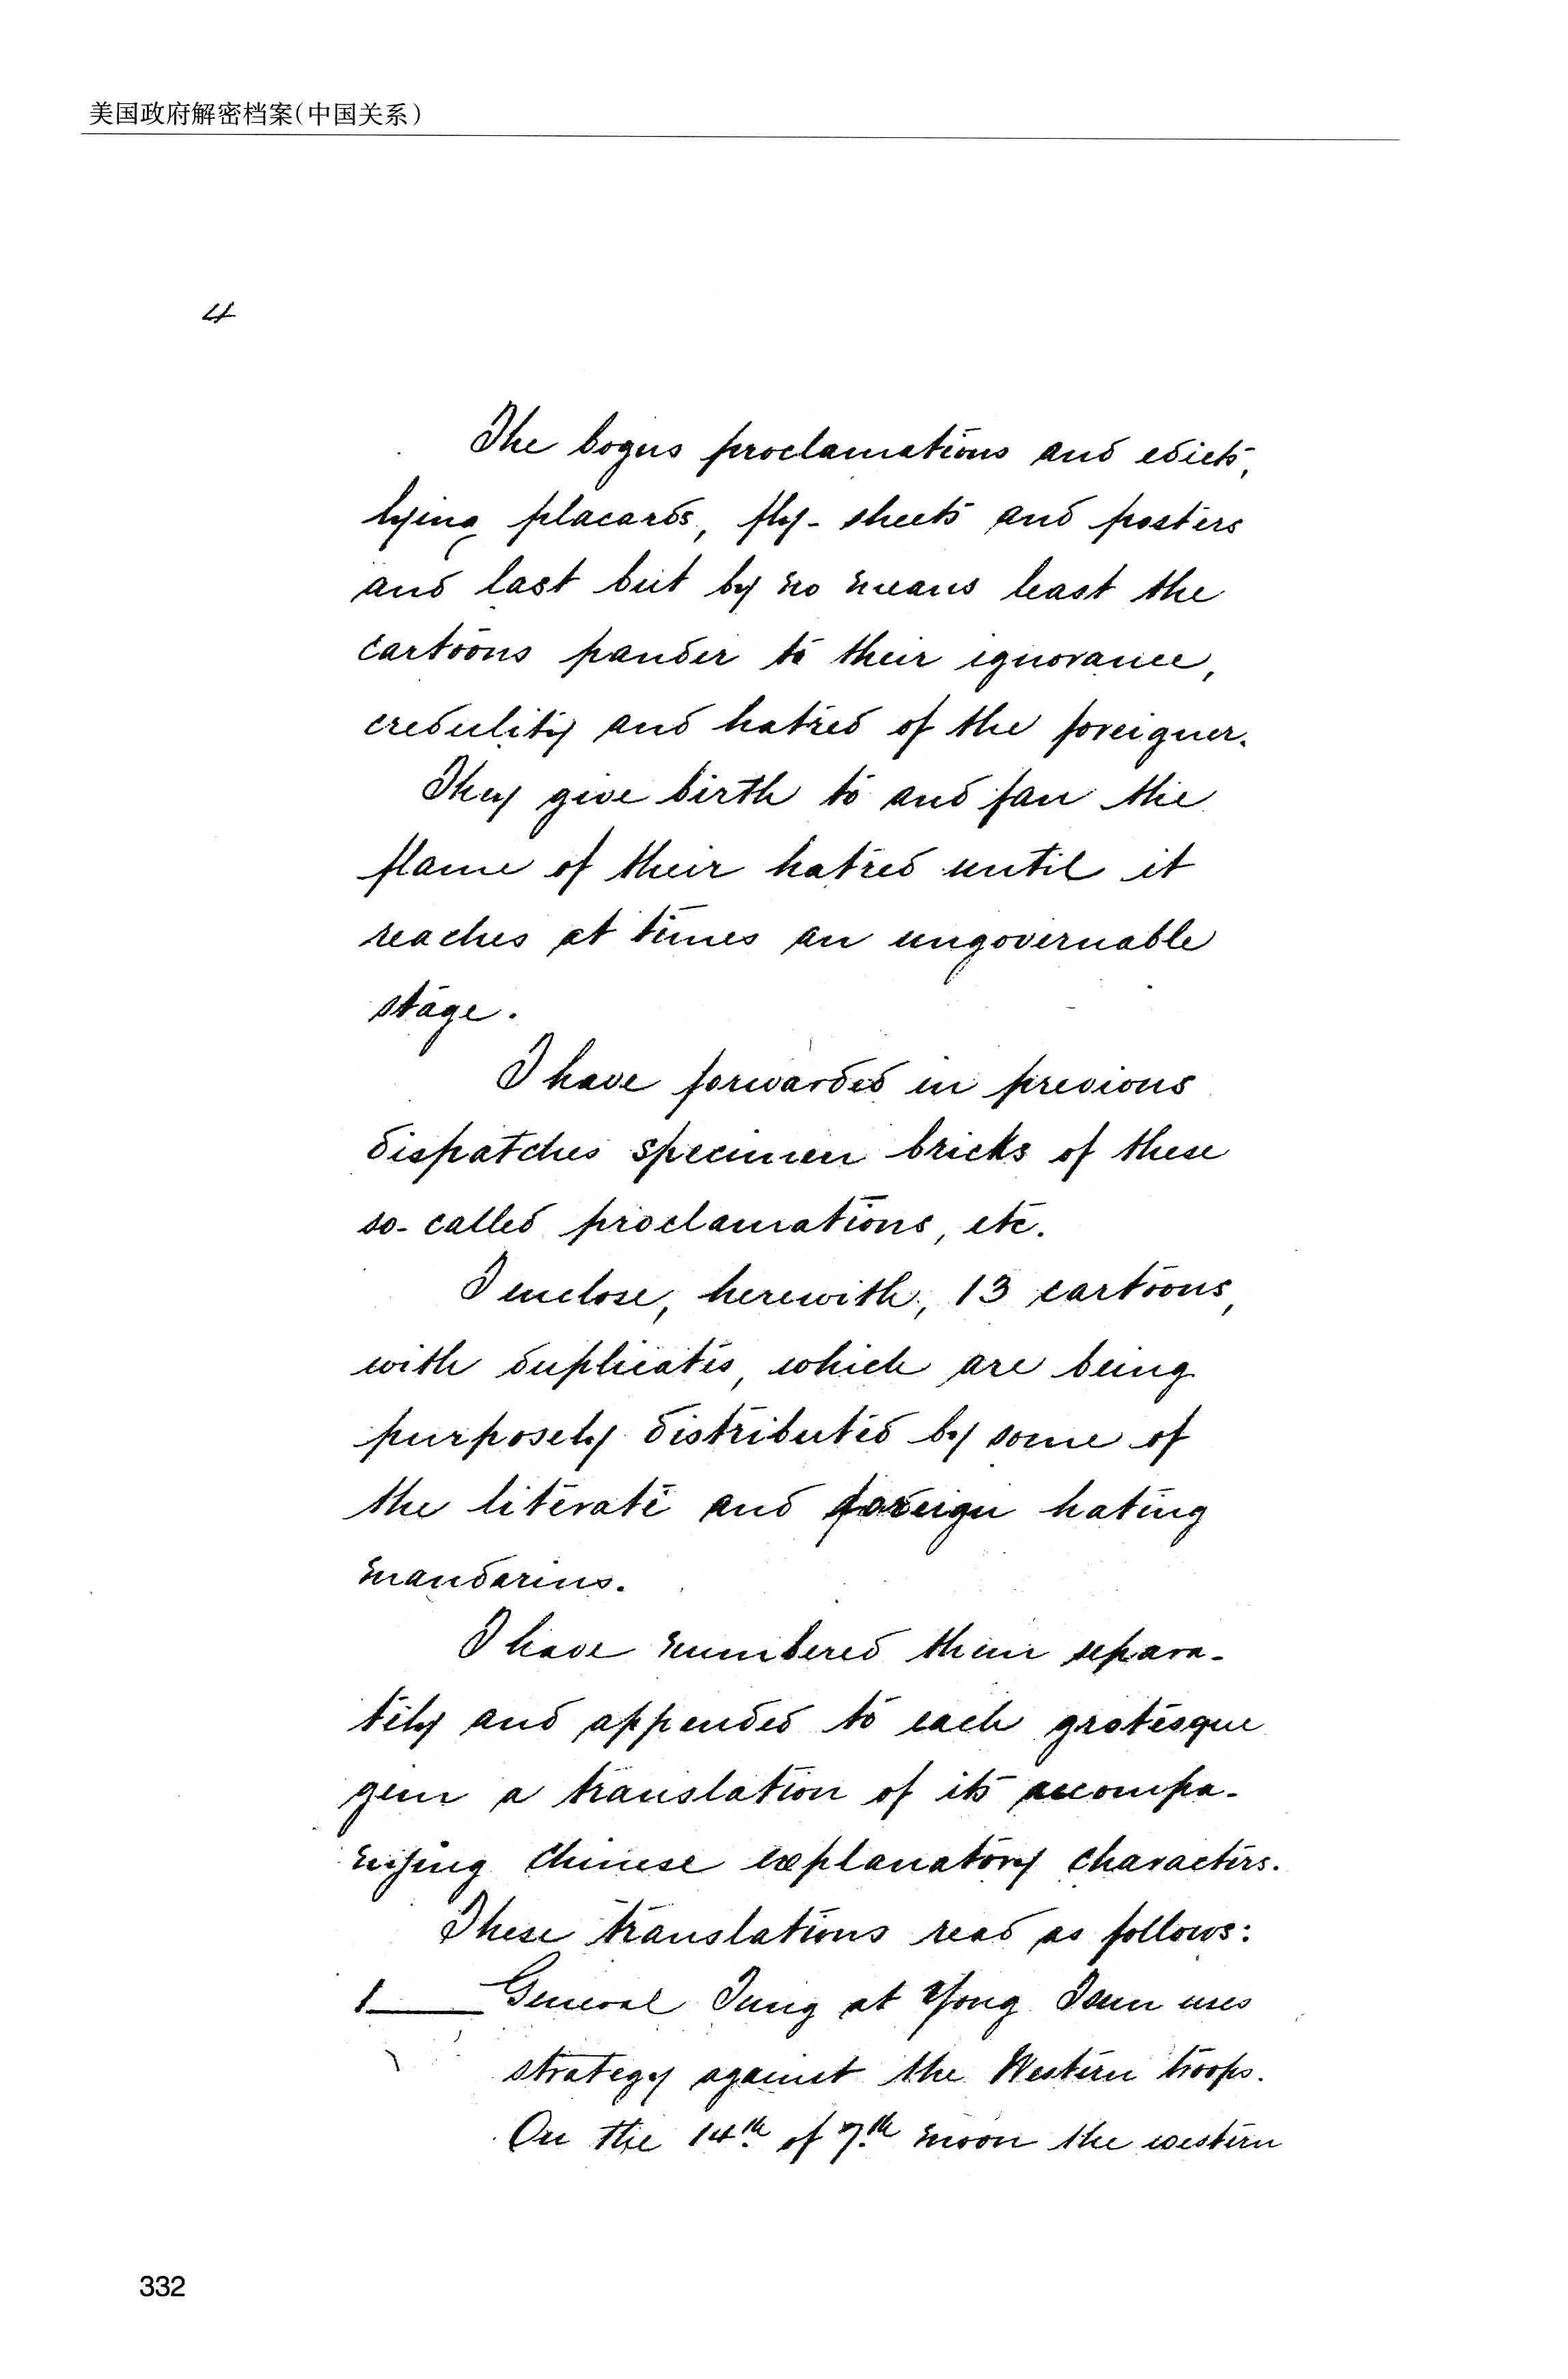 美国政府解密档案(中国关系)
4
The bogus proclamations and edicts,
lying placards, fly-sheets and posters
and last but by no means least the
cartoons pander to their ignorance,
credulity and hatred of the foreigner.
They give birth to and fan the
flame of their hatred until it
reaches at times an ungovernable
stage.
I have forwarded in previous
dispatches specimen bricks of these
so-called proclamations, etc.
I enclose, herewith, 13 cartoons,
with duplicates, which are being
purposely distributed by some of
the literate and foreign hating
mandarins.
I have numbered them separa-
tely and appended to each grotesque
gem a translation of its accompa-
nying Chinese explanatory characters.
These translations read as follows:
1 General Tung at Yong uses
strategy against the Western troops.
On the 14th of 7th moon the western
332